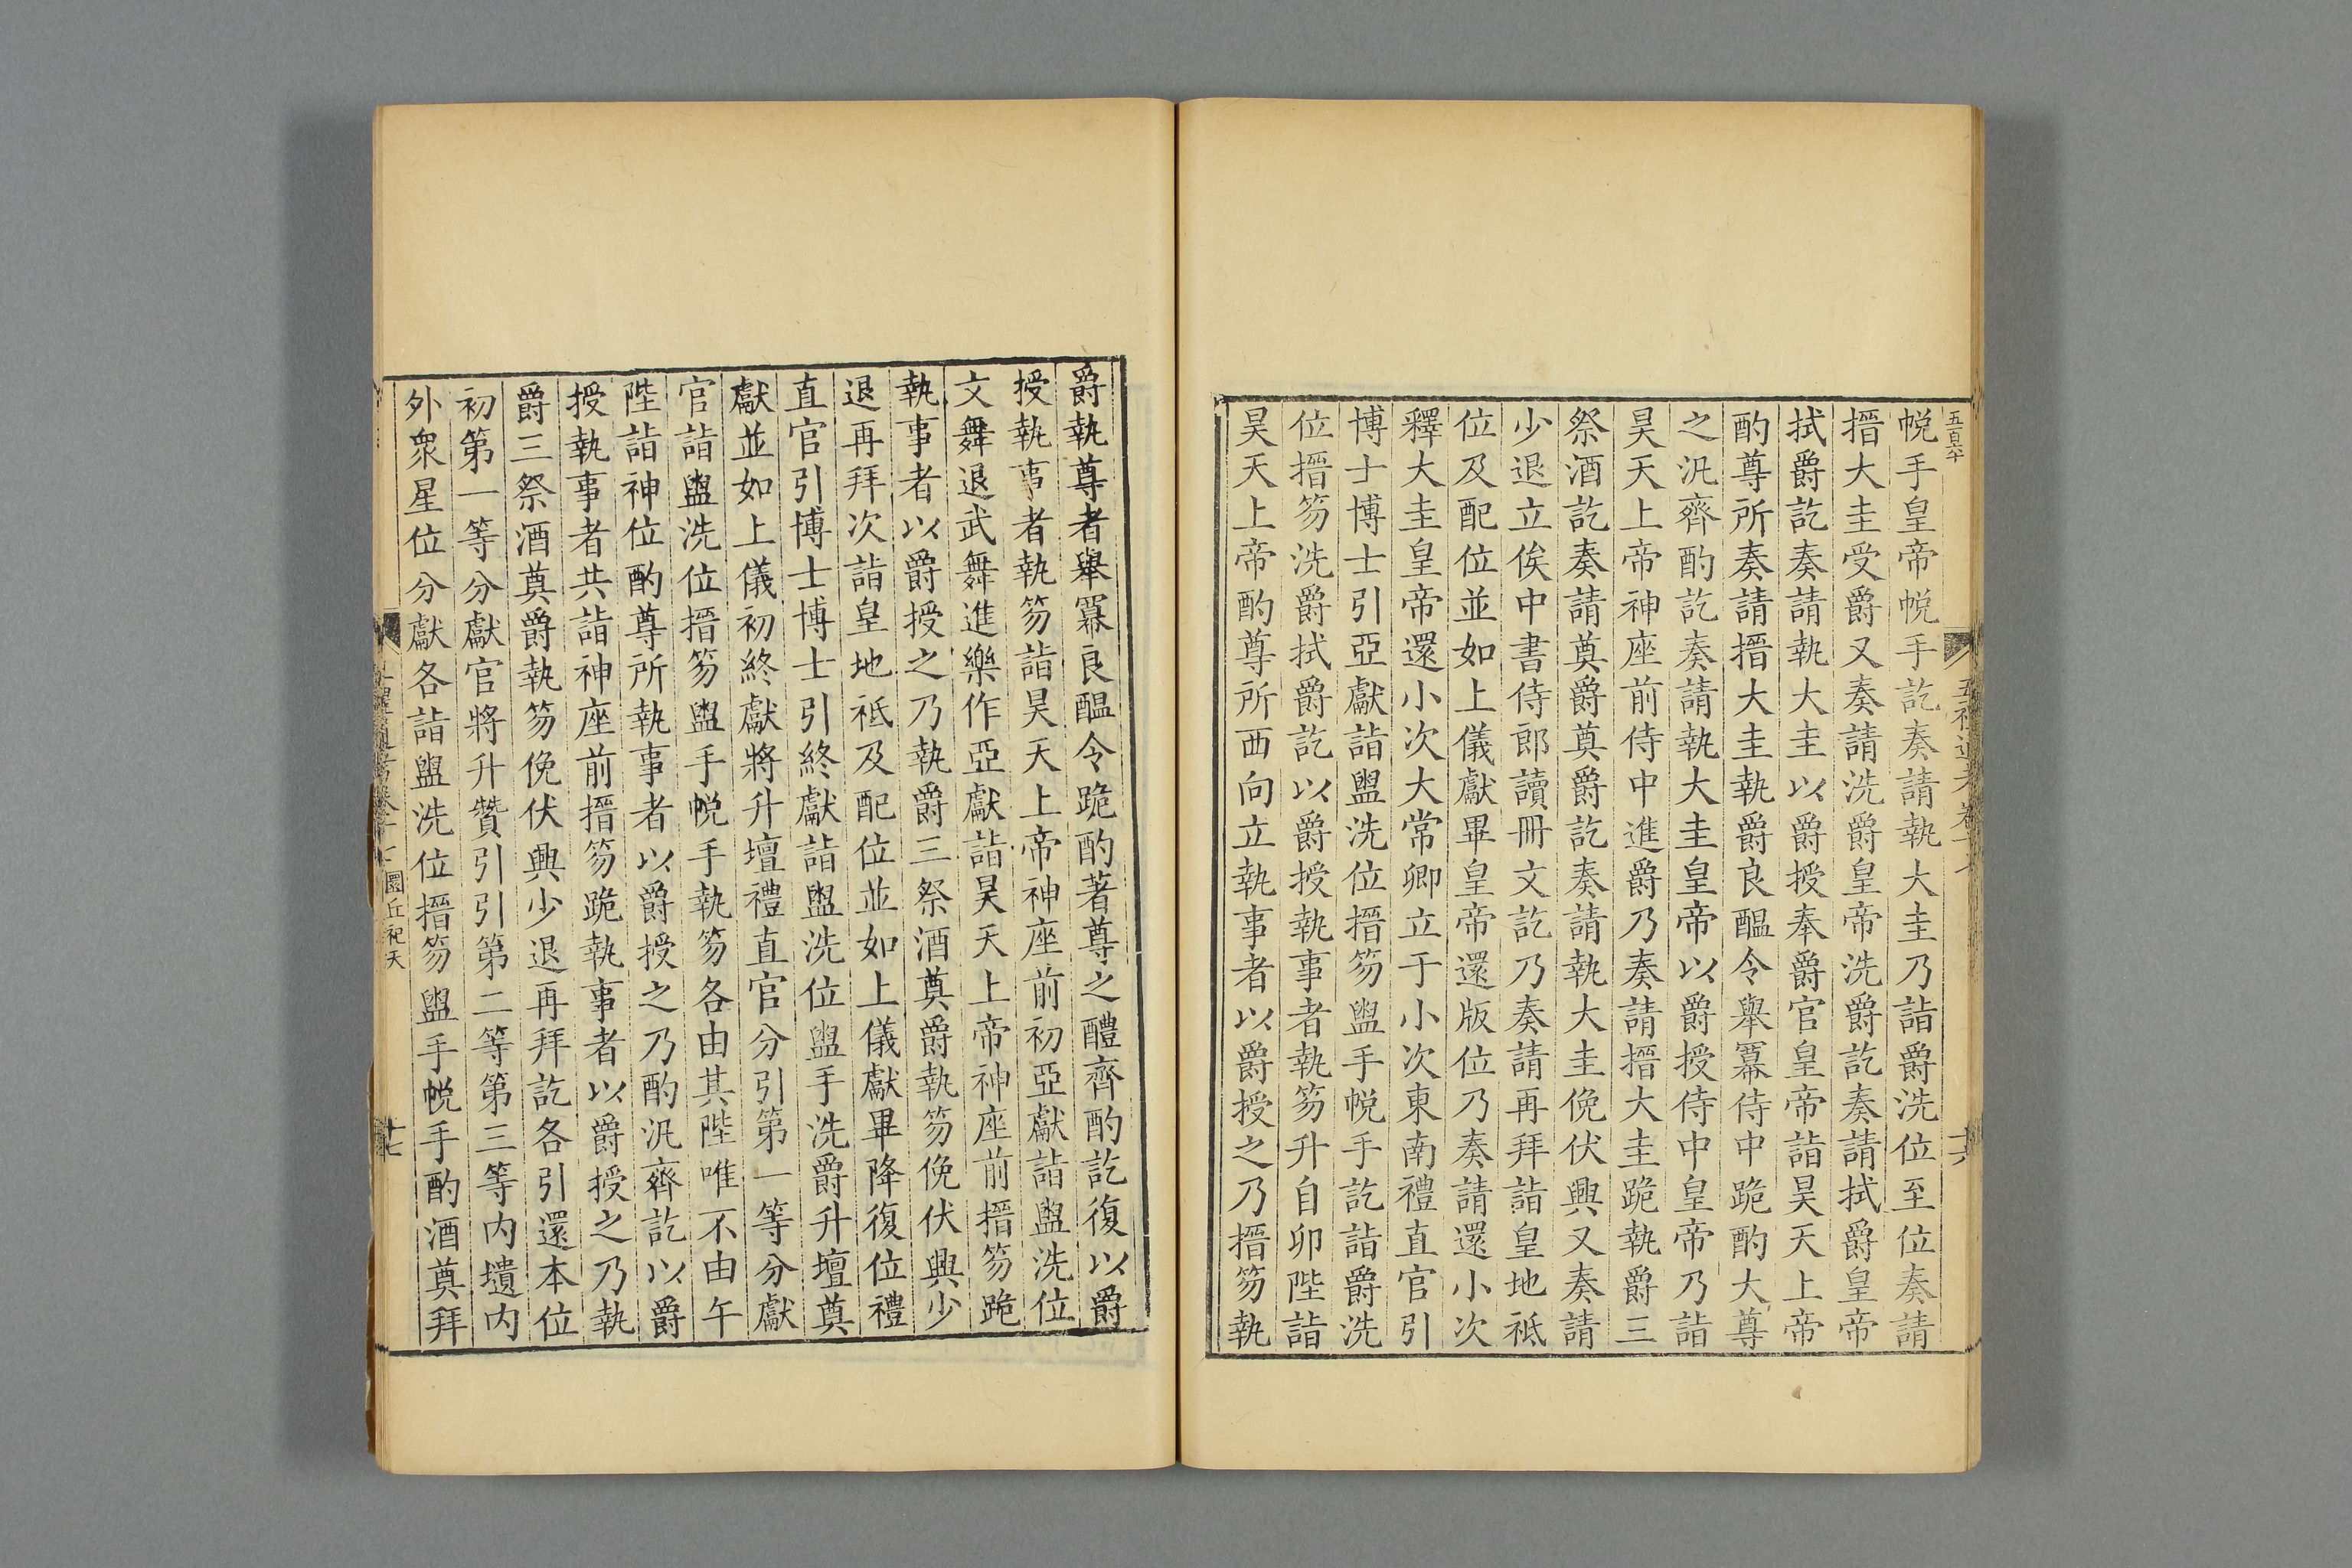 五百卆
帨手皇帝帨手訖奏請執大圭乃詣爵洗位至位奏請
搢大圭受爵又奏請洗爵皇帝洗爵訖奏請拭爵皇帝
拭爵訖奏請執大圭以爵授奉爵官皇帝詣昊天上帝
酌尊所奏請搢大圭執爵良醞令舉冪侍中跪酌大尊
之汎齊酌訖奏請執大圭皇帝以爵授侍中皇帝乃詣
昊天上帝神座前侍中進爵乃奏請搢大圭跪執爵三
祭酒訖奏請奠爵奠爵訖奏請執大圭俛伏興又奏請
少退立俟中書侍郎讀冊文訖乃奏請再拜詣皇地祇
位及配位並如上儀獻畢皇帝還版位乃奏請還小次
釋大圭皇帝還小次大常卿立于小次東南禮直官引
博士博士引亞獻詣盥洗位搢笏盥手帨手訖詣爵洗
位搢笏洗爵拭爵訖以爵授執事者執笏升自卯陛詣
昊天上帝酌尊所西向立執事者以爵授之乃搢笏執
爵執尊者舉冪良醞令跪酌著尊之醴齊酌訖復以爵
授執事者執笏詣昊天上帝神座前初亞獻詣盥洗位
文舞退武舞進樂作亞獻詣昊天上帝神座前搢笏跪
執事者以爵授之乃執爵三祭酒奠爵執笏俛伏興少
退再拜次詣皇地祇及配位並如上儀獻畢降復位禮
直官引博士博士引終獻詣盥洗位盥手洗爵升壇奠
獻並如上儀初終獻將升壇禮直官分引第一等分獻
官詣盥洗位搢笏盥手帨手執笏各由其陛唯不由午
陛詣神位酌尊所執事者以爵授之乃酌汎齊訖以爵
授執事者共詣神座前搢笏跪執事者以爵授之乃執
爵三祭酒奠爵執笏俛伏興少退再拜訖各引還本位
初第一等分獻官將升贊引引第二等第三等內壝內
外衆星位分獻各詣盥洗位搢笏盥手帨手酌酒奠拜
圜丘祀天